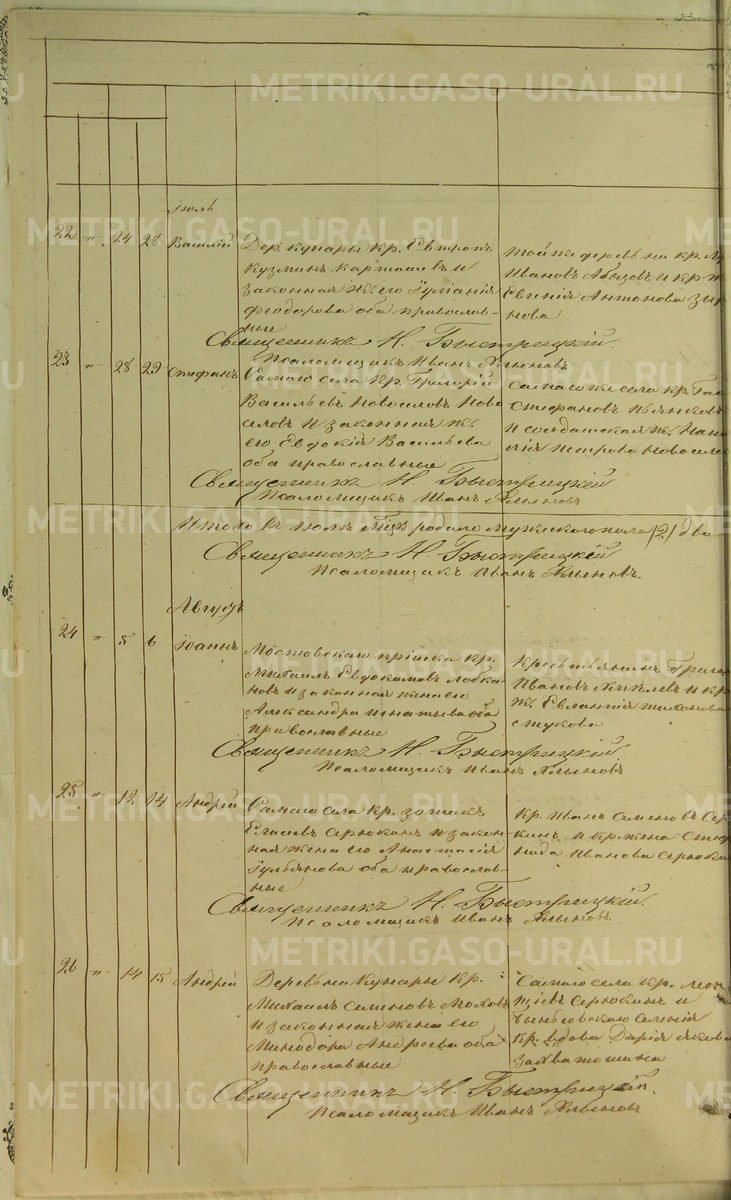 METRIKI.GASO-URAL.RU
Іюль
22 " 24 28 Василій Дер. Кунары кр. Евтропъ
Кузминъ Карташевъ и
законная ж. его Іуліанія
Феодорова оба православ-
ные
той же деревни кр.
Ивановъ и кр. ж.
Евгенія Антонова
нова
Священникъ Н. Быстрицкій.
Псаломщикъ Иванъ
23 " 28 29 Стефанъ Самаго села кр. Григорій
Васильевъ Новоселовъ Ново
селовъ и законная ж.
его Евдокія Васильева
оба православные
Самаго же села кр.
Стефановъ
и солдатская ж.
Новосело
Священникъ Н. Быстрицкій
Псаломщикъ Иванъ
Итого въ іюлѣ мцѣ родилось мужескаго пола (2) два
Священникъ Н. Быстрицкій
Псаломщикъ Иванъ
Августъ
24 " 5 6 Іоаннъ Мостовскаго пріиска кр.
Михаилъ Евдокимовъ Лобка
новъ и законная жена его
Александра Игнатьева оба
православные
Крестьянинъ Григо
Ивановъ и кр.
ж. Евлампія
стукова
Священникъ Н. Быстрицкій
Псаломщикъ Иванъ
25 " 12 14 Андрей Самаго села кр. Зотикъ
Елисеевъ Серюкинъ и закон
ная жена его Анастасія
оба православ-
ные
Кр. Иванъ Семеновъ Сер
кинъ и кр. жена Степ
нида Иванова Серюки
Священникъ Н. Быстрицкій.
Псаломщикъ Иванъ
26 " 14 15 Андрей Деревни Кунары кр.
Михаилъ Семеновъ Мохов
и законная жена его
Минодора Андреева оба
православные
Самаго села кр. Леон
тіевъ Серюкинъ и
селенія
кр. вдова Дарія Яков
Захватошина
Священникъ Н. Быстрицкій.
Псаломщикъ Иванъ